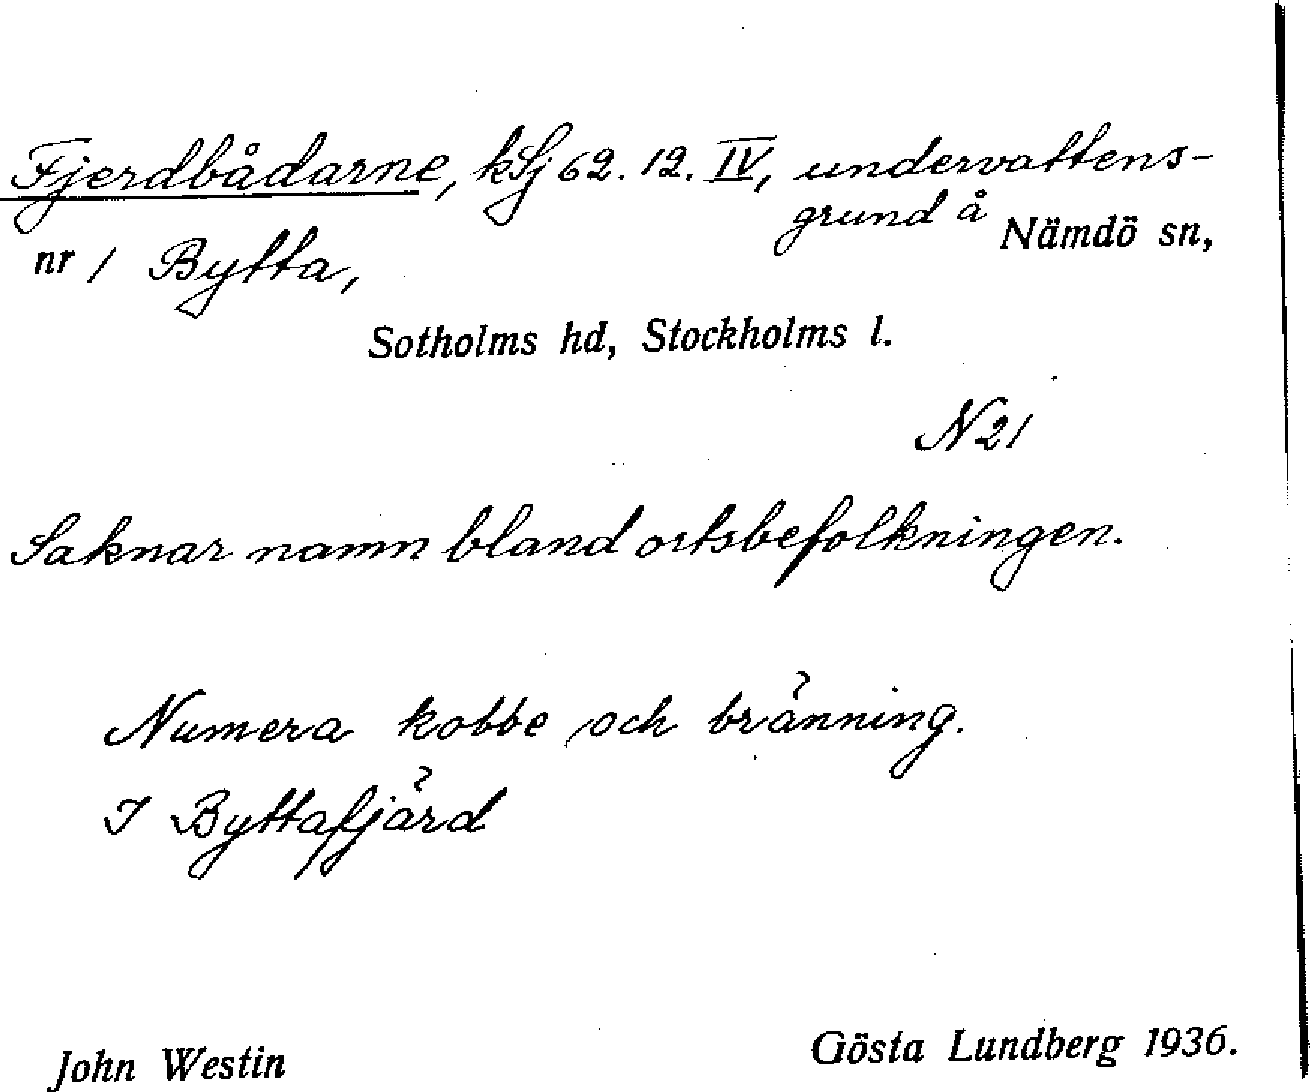 Fjerdbådarne, kSj 62. 12. IV, undervattens-
grund å Nämdö sn,
nr 1 Bytta,
Sotholms hd, Stockholms l.
N 21
Saknar namn bland ortsbefolkningen.
Numera kobbe och bränning.
I Byttafjärd
John Westin
Gösta Lundberg 1936.